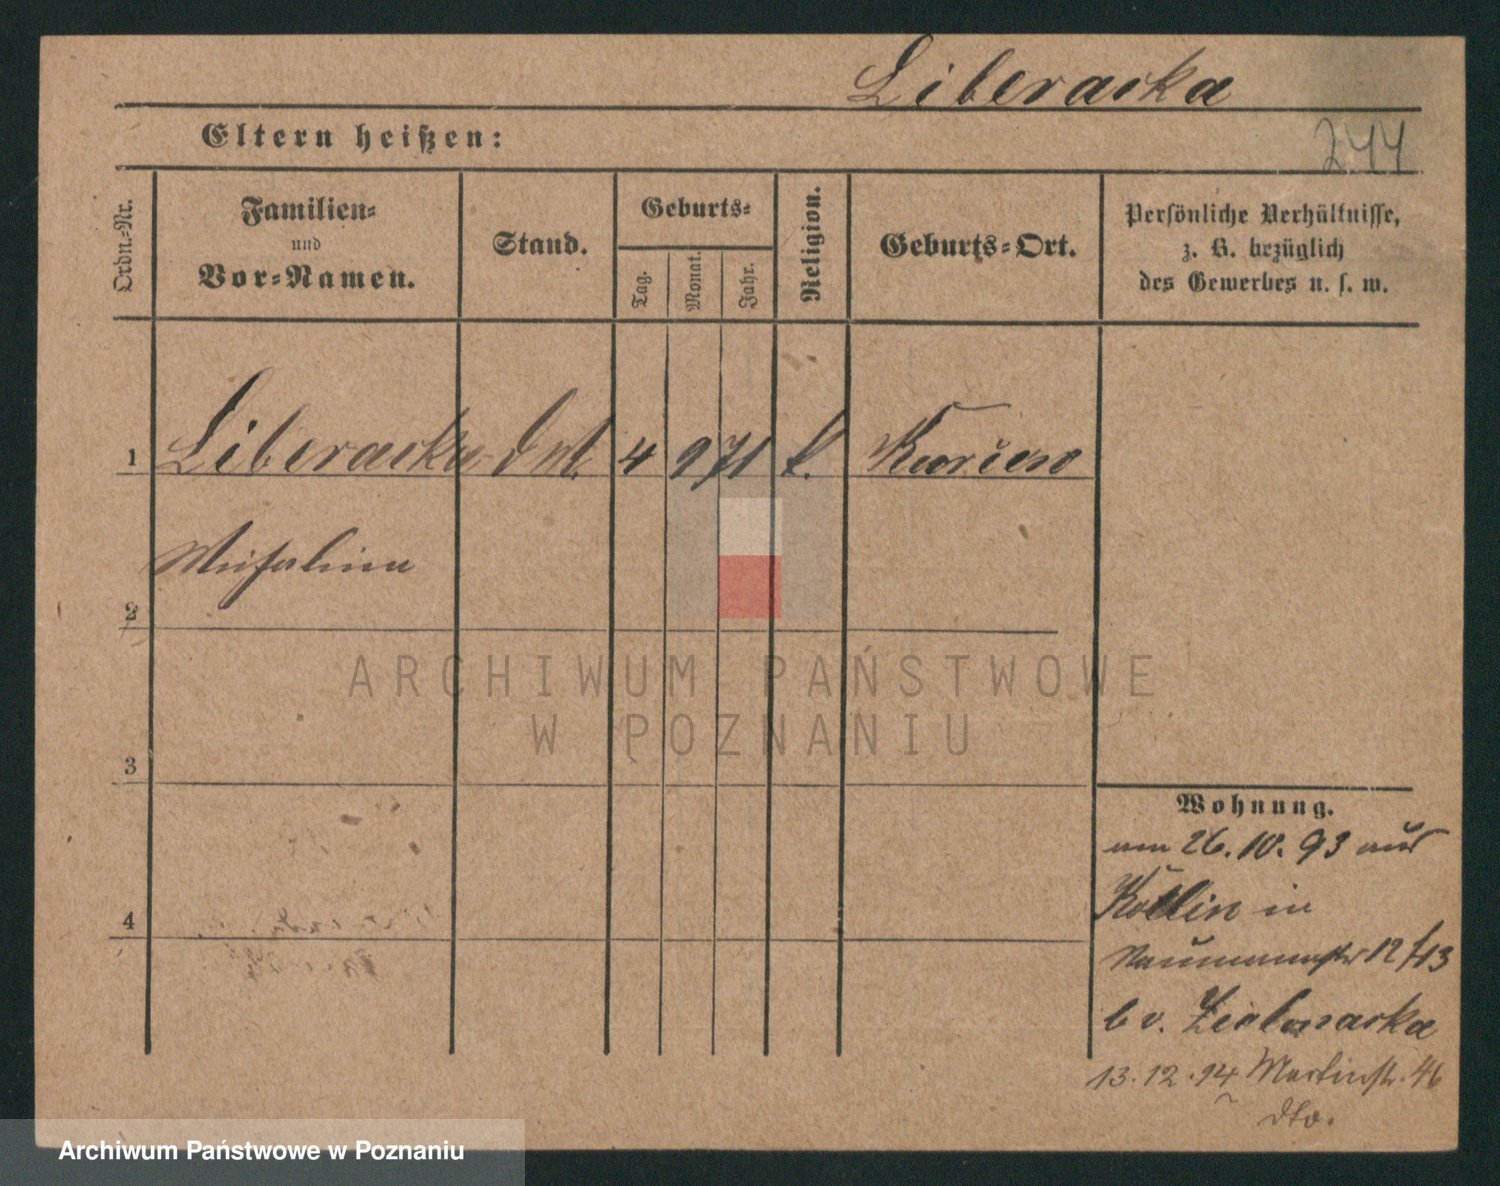 Liberacka
Eltern heißen:
244
Ordn.-Nr.
Familien-
und
Vor-Namen.
Stand.
Geburts-
Tag.
Monat.
Jahr.
Religion.
Geburts-Ort.
Persönliche Verhältnisse,
z. B. bezüglich
des Gewerbes u. s. w.
1 Liberacka 4 9 71 k.
2
3
4
Wohnung.
am 26.10.93 aus
Köllin in
Naumannstr 12/13
b v.
13.12.94 Martinstr. 46
dto.
ARCHIWUM PAŃSTWOWE
W POZNANIU
Archiwum Państwowe w Poznaniu